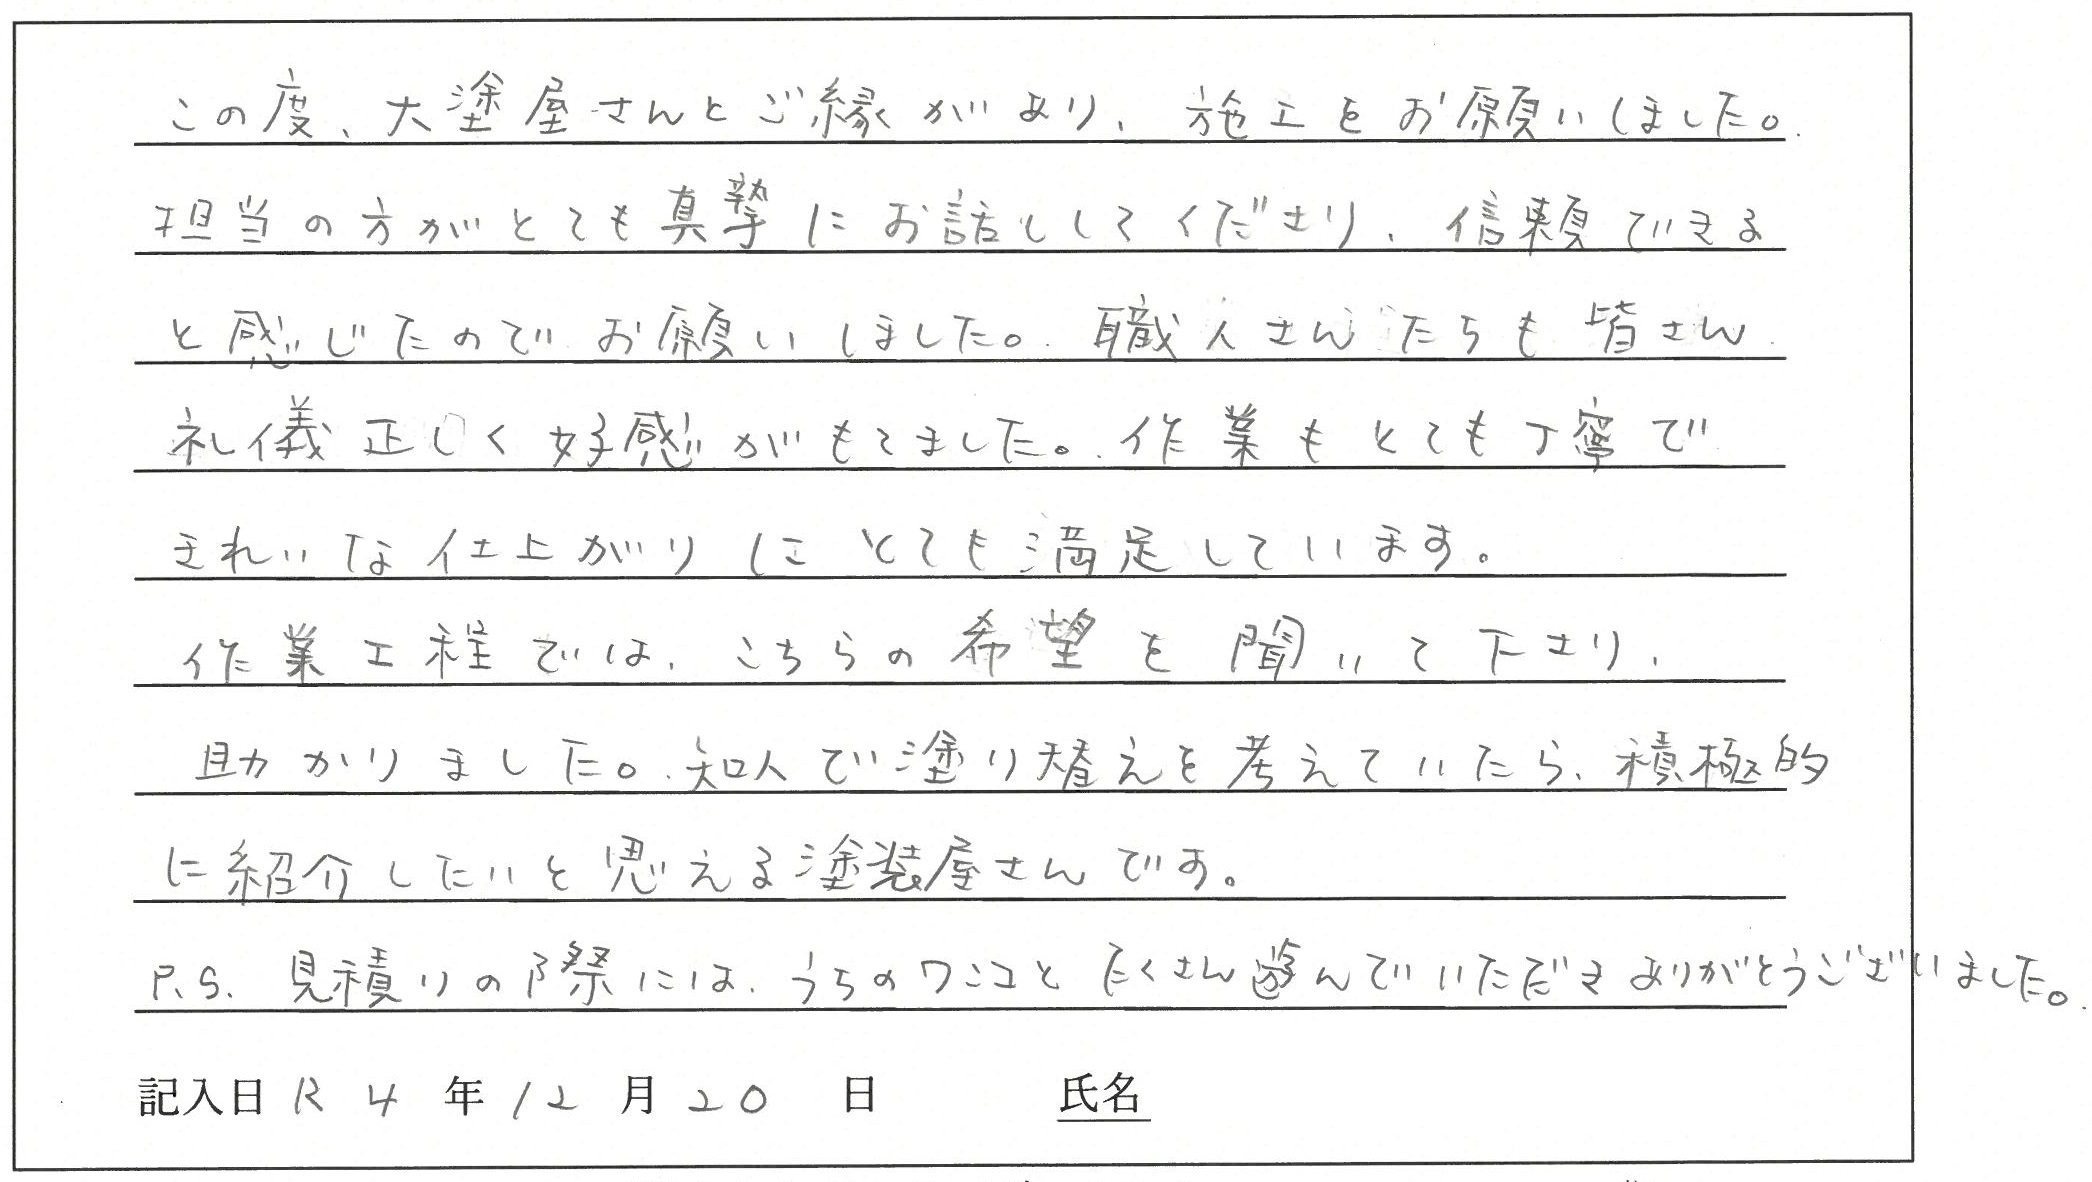 この度、大塗屋さんとご縁があり、施工をお願いしました。
担当の方がとても真摯にお話ししてくださり、信頼できる
と感じたのでお願いしました。職人さんたちも皆さん
礼儀正しく好感がもてました。作業もとても丁寧で
きれいな仕上がりにとても満足しています。
作業工程では、こちらの希望を聞いて下さり、
助かりました。知人で塗り替えを考えていたら、積極的
に紹介したいと思える塗装屋さんです。
P.S. 見積りの際には、うちのワンコとたくさん遊んでいただきありがとうございました。
記入日 R4年12月20日 氏名